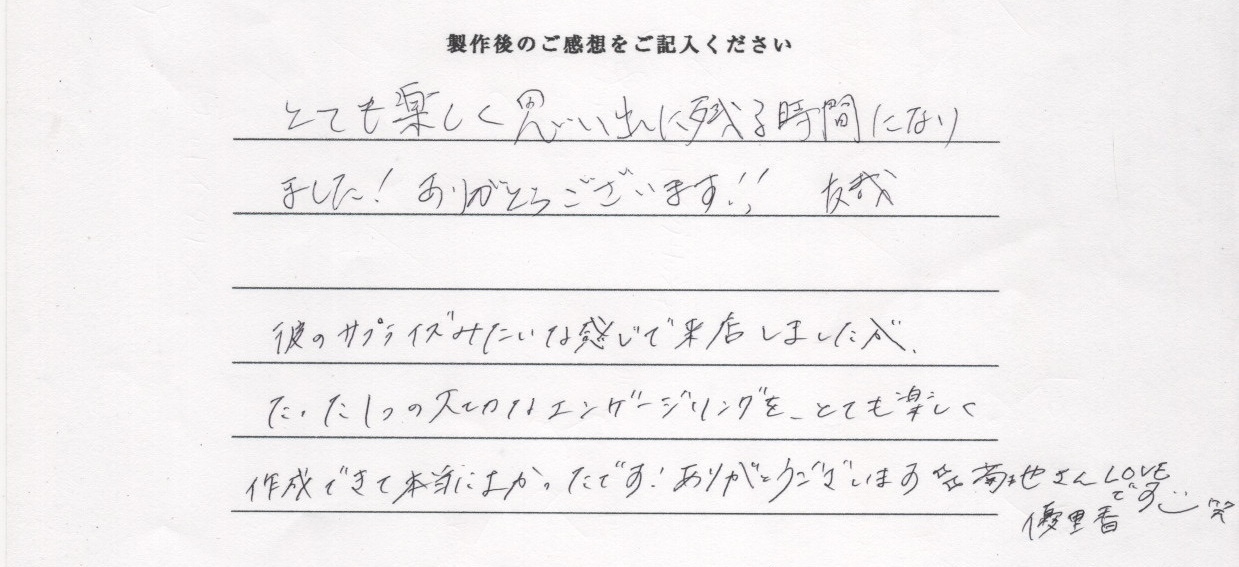 製作後のご感想をご記入ください
とても楽しく思い出に残る時間になり
ました！ありがとうございます!! 友哉
彼のサプライズみたいな感じで来店しましたが、
たった1つの大切なエンゲージリングを、とても楽しく
作成できて本当によかったです！ありがとうございます☆菊地さんLOVE
です 笑
優里香